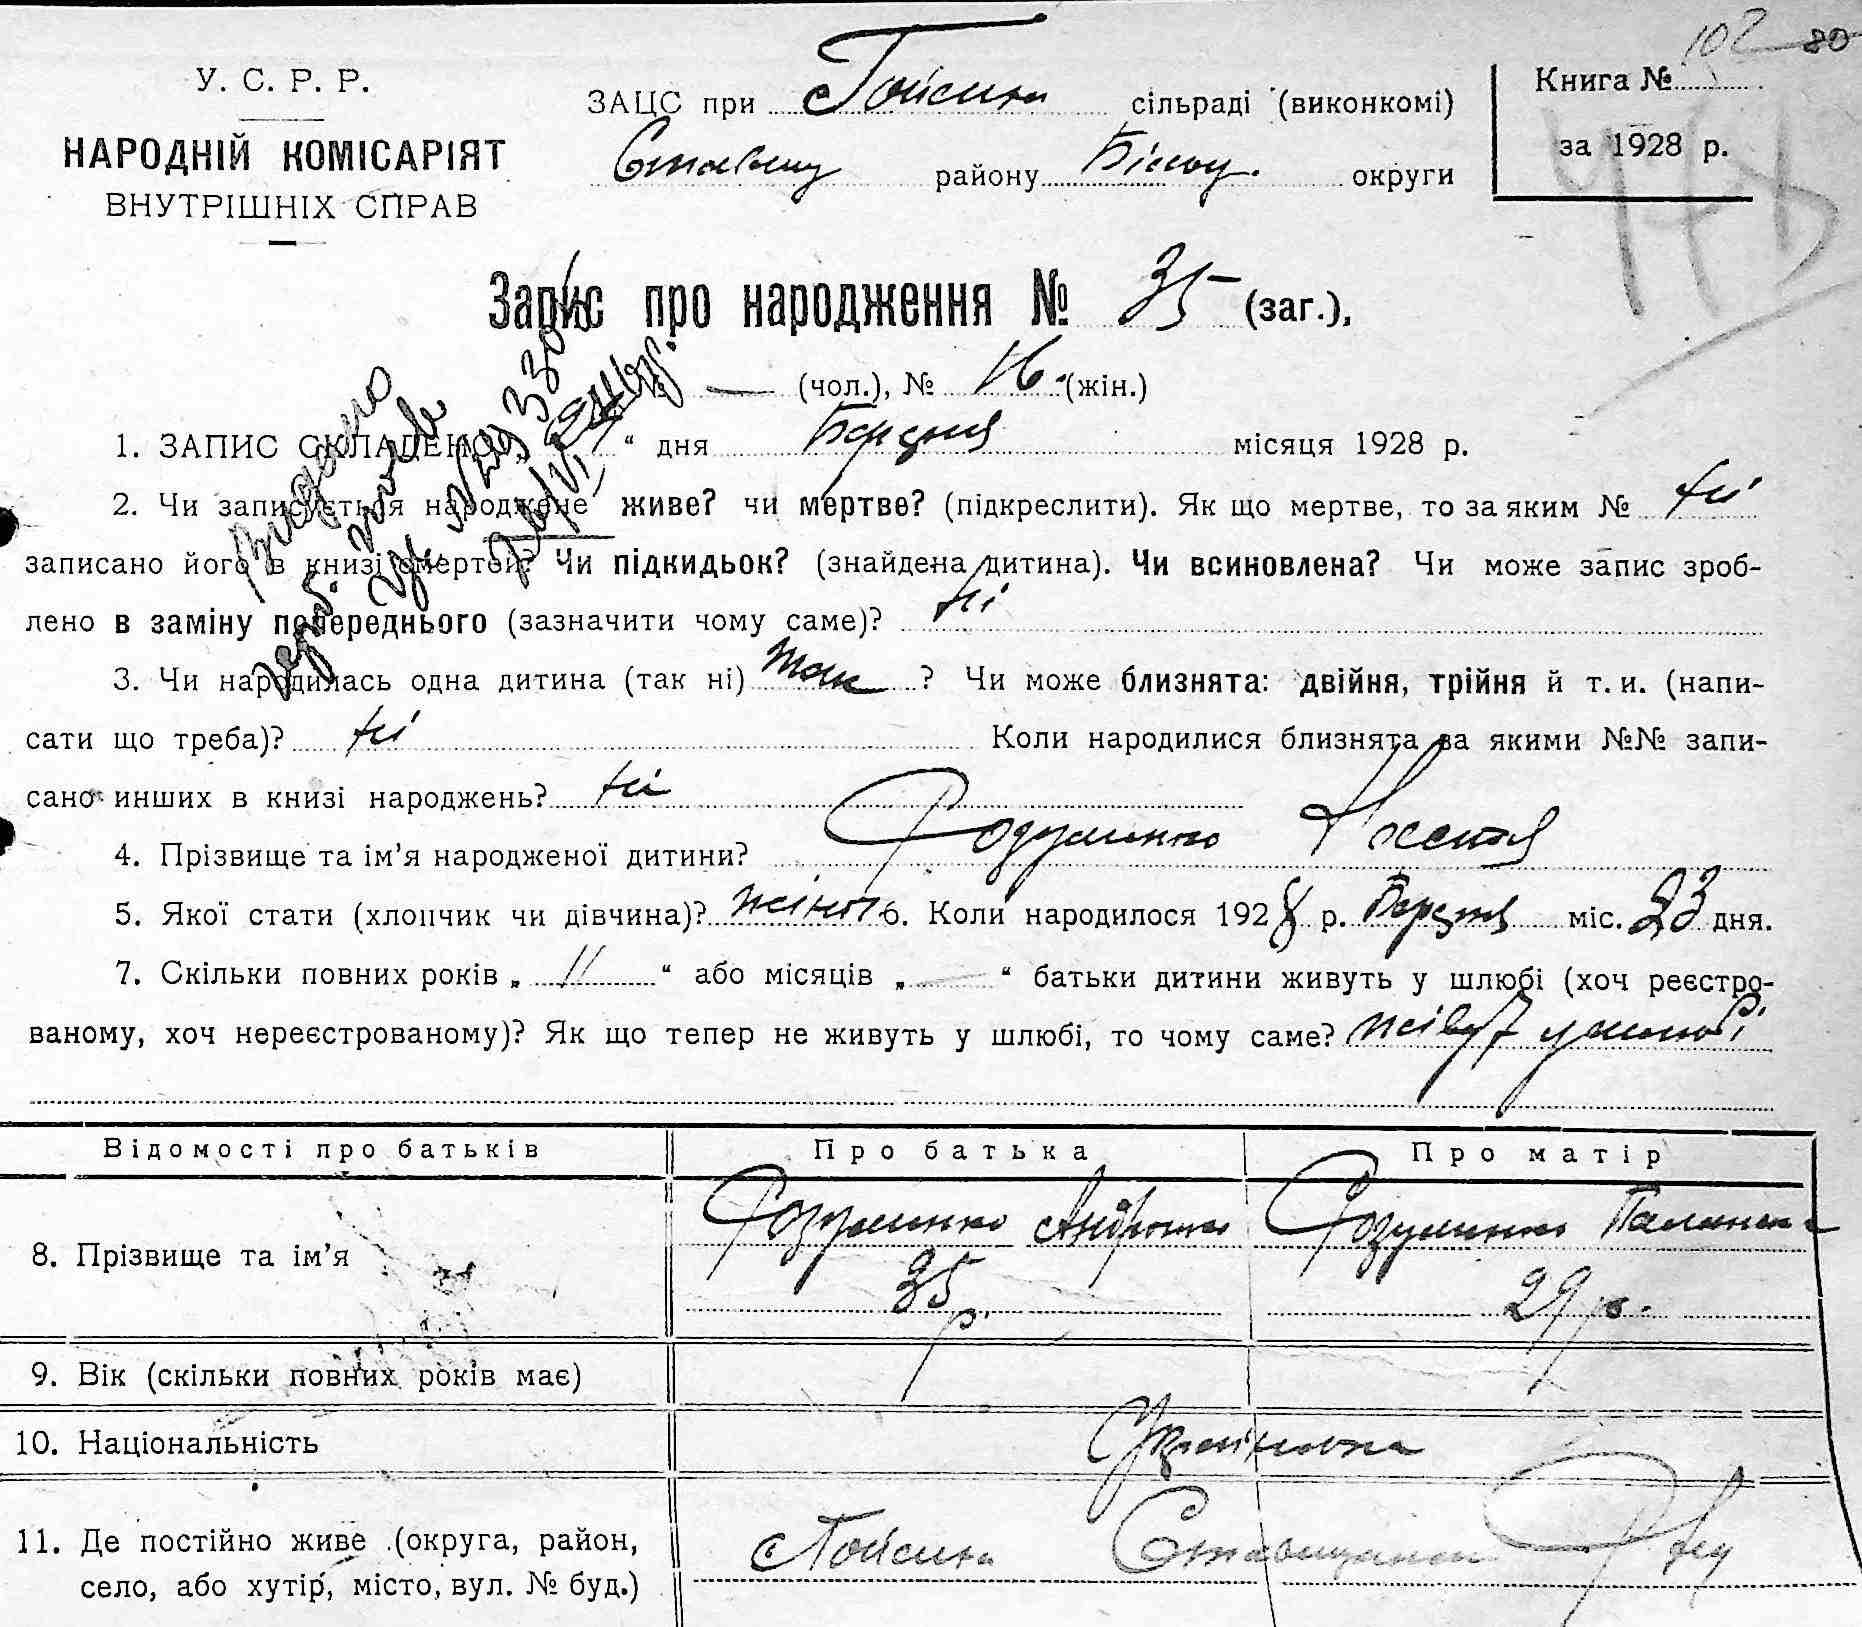 102 80
У. С. Р. Р.
НАРОДНІЙ КОМІСАРІЯТ
ВНУТРІШНІХ СПРАВ
ЗАЦС при с Гойсина сільраді (виконкомі)
Ставищ району Білоц. округи
Книга №
за 1928 р.
Запис про народження № 35 (заг.),
— (чол.), № 16 (жін.)
1. ЗАПИС СКЛАДЕНО „ “ дня Березня місяця 1928 р.
2. Чи записується народжене живе? чи мертве? (підкреслити). Як що мертве, то за яким № ні
записано його в книзі смертей? Чи підкидьок? (знайдена дитина). Чи всиновлена? Чи може запис зроб-
лено в заміну попереднього (зазначити чому саме)? ні
3. Чи народилась одна дитина (так ні) так ? Чи може близнята: двійня, трійня й т. и. (напи-
сати що треба)? ні Коли народилися близнята за якими №№ запи-
сано инших в книзі народжень? ні
4. Прізвище та ім’я народженої дитини? Розуменко Ксенія
5. Якої стати (хлопчик чи дівчина)? жіноч 6. Коли народилося 1928 р. Березня міс. 23 дня.
7. Скільки повних років „ 11 “ або місяців „ — “ батьки дитини живуть у шлюбі (хоч реєстро-
ваному, хоч нереєстрованому)? Як що тепер не живуть у шлюбі, то чому саме? живут у шлюбі
Відомості про батьків Про батька Про матір
8. Прізвище та ім’я Розуменко Андрон Розуменко Палажка
35 р. 29 р.
9. Вік (скільки повних років має)
10. Національність Українська
11. Де постійно живе (округа, район,
село, або хутір, місто, вул. № буд.) с Гойсина Ставищанськ